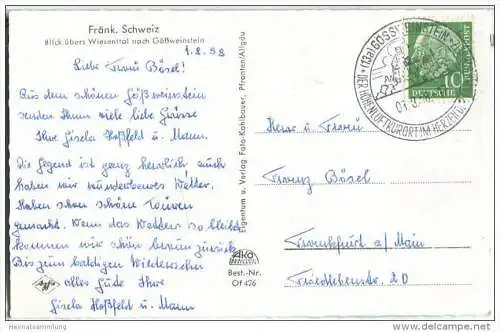 Fränk. Schweiz
Blick übers Wiesenttal nach Gößweinstein
1.8.58
Liebe Frau Bösel!
Aus dem schönen Gößweinstein
senden Ihnen viele liebe Grüsse
Ihre Gisela Hoßfeld u. Mann.
Die Gegend ist ganz herrlich auch
haben wir wunderbares Wetter.
Haben schon schöne Touren
gemacht. Wenn das Wetter so bleibt
kommen wir schön braun zurück.
Bis zum baldigen Wiedersehn
alles Gute Ihre
Gisela Hoßfeld u. Mann
Eigentum u. Verlag Foto Kohlbauer, Pfronten/Allgäu
Best.-Nr.
Of 426
(13a) GÖSSWEINSTEIN
DER HÖHENLUFTKURORT IM HERZEN
DEUTSCHE BUNDESPOST
10
Herrn u. Frau
Franz Bösel
Frankfurt a/Main
Friedlebenstr. 20
Heimatsammlung
delcampe.net